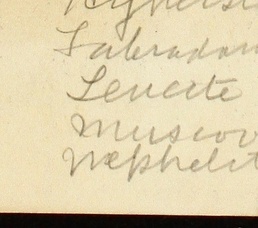 Labrador
Leucite
Muscov
Nephelit